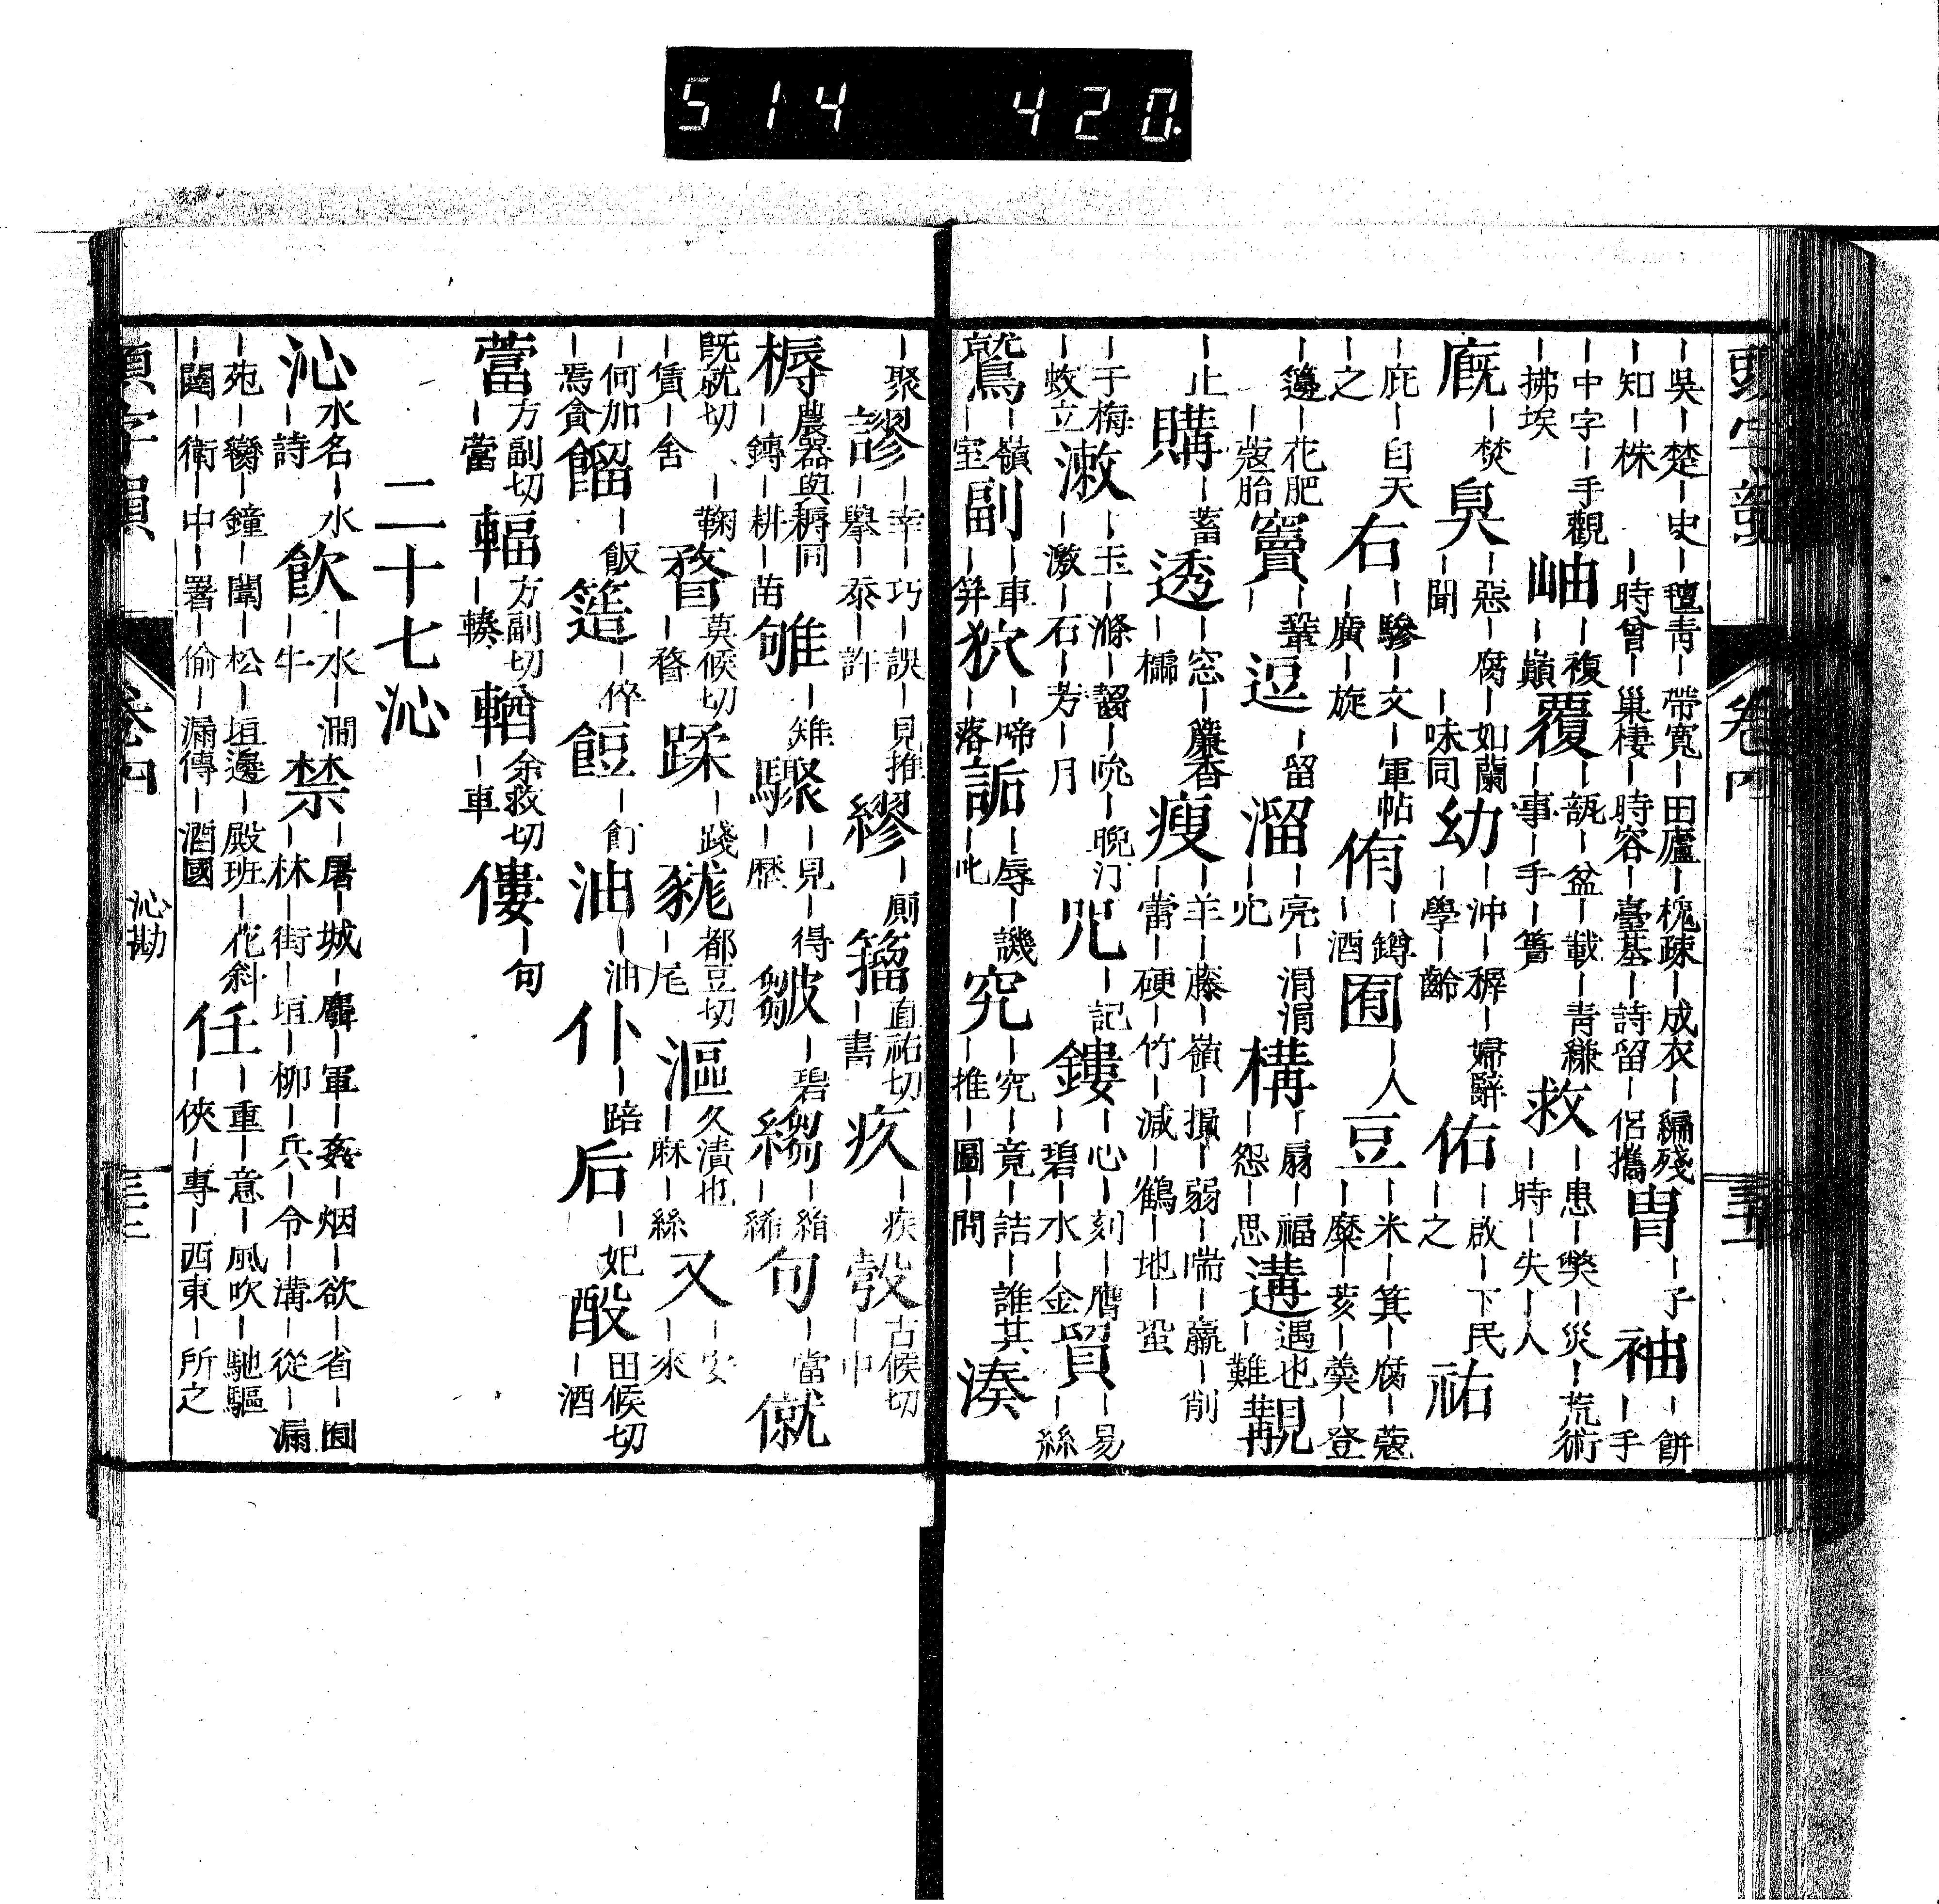 514 420.
頭字韻 卷四
丨吳丨楚丨史丨氊靑丨帶寬丨田廬丨槐疎丨成衣丨編殘丨餅
丨知丨株丨時曾丨巢棲丨時容丨臺基丨詩留丨侶攜冑丨子袖丨手
丨中字丨手觀岫丨複覆丨瓿丨盆丨載丨靑縑救丨患丨獘丨災丨荒術
丨拂埃丨巓丨事丨手丨醬丨時丨失丨人
廐丨焚臭丨惡丨腐丨如蘭幼丨沖丨穉丨婦辭佑丨啟丨下民祐
丨聞丨味同丨學丨齡丨之
丨庇丨自天右丨驂丨文丨軍帖侑丨罇囿丨人豆丨米丨箕丨腐丨蔻
丨之丨廣丨旋丨酒丨糜丨荄丨羹丨登
丨籩丨花肥竇丨鞏逗丨留溜丨亮丨涓涓構丨扇丨福遘遇也覯
丨蔻胎丨丨穴丨怨丨思丨難
丨止購丨蓄透丨窓丨簾香瘦丨羊丨藤丨嶺丨損丨弱丨喘丨羸丨削
丨櫺丨雷丨硬丨竹丨減丨鶴丨地丨蛩
丨于梅漱丨玉丨滌丨齧丨吮丨晚汀咒丨記鏤丨心丨刻丨膺貿丨易
丨蚊立丨激丨石丨芳丨月丨碧丨水丨金丨絲
鷲丨嶺副丨車狖丨啼詬丨辱丨譏究丨究丨竟丨詰丨誰其湊
丨室丨笄丨落丨叱丨推丨圖丨問
丨聚謬丨幸丨巧丨誤丨見推繆丨廟籀直祐切疚丨疾彀古候切
丨舉丨忝丨許丨書丨中
槈農器與耨同雊丨雉驟丨見丨得皺丨碧縐丨綃句丨當僦
丨鎛丨耕丨苗丨歷丨絺
旣就切丨鞠瞀莫候切蹂丨踐㺃都豆切漚久漬也又丨安
丨賃丨舍丨瞀丨尾丨麻丨絲丨來
丨何加餾丨飯簉丨倅餖丨飣油丨油仆丨踣后丨妃酘田候切
丨焉貪丨酒
葍方副切輻方副切輶余救切僂丨句
丨葍丨輳丨車
二十七沁
沁水名丨水飮丨水丨澗禁丨屠丨城丨麛丨軍丨姦丨烟丨欲丨省丨園
丨詩丨牛丨林丨街丨垣丨柳丨兵丨令丨溝丨從丨漏
丨苑丨臠丨鐘丨闈丨松丨垣邊丨殿班丨花斜任丨重丨意丨風吹丨馳驅
丨闥丨衛丨中丨署丨偷丨漏傳丨酒國丨俠丨專丨西東丨所之
頭字韻 卷四 沁勘